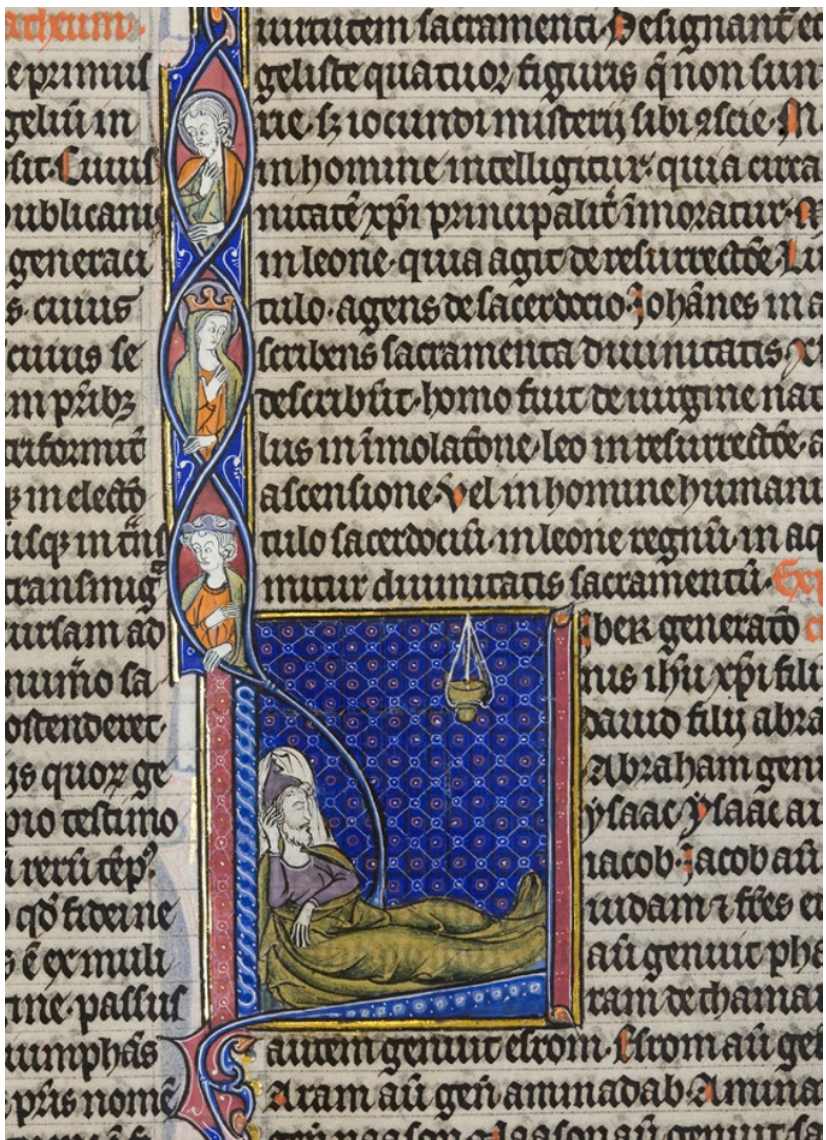 atheum.
e primus
geliū in
sit. Cuius
publicani
generaci
s. cuius
cuius se
m prībꝫ
triformit̄
ꝫ in electō
transmigᵃ
cursam ad
numō sa
ostenderet.
is quoꝝ ge
pio testimo
rerū tēp̄.
qđ fidei ne
s ē ex muli
ine. passus
iumphās
pr̄is nomē
uirtutem sacramenti. Designant̄ et
geliste quatuor figuris q̄ non sun
rie. sꝫ iocundi misterij sibi ꝯscie. M
in homine intelligitur. quia circa
nitatē xp̄i principalit̄ īmoratur. M
in leone. quia agit de resurrectōe. Lu
tulo. agens de sacerdocio. Johānes in a
scribens sacramenta diuinitatis. xp̄
describūt. homo fuit de uirgine nat
lus in īmolatōne. leo in resurrectōe. a
ascensione. Vel in homine humani
tulo sacerdociū. in leone regnū. in aq
mitur diuinitatis sacramentū. Exp
Liber generatō
nis ih̄u xp̄i fili
dauid filij abra
Abraham genu
ysaac. ysaac au
iacob. Jacob aū
iudam ⁊ fr̄es ei
aū genuit pha
ram de thamar
autem genuit esrom. Esrom aū gen
Aram aū geñ aminadab. Amina
geñ naason. Naason aū genuit sa